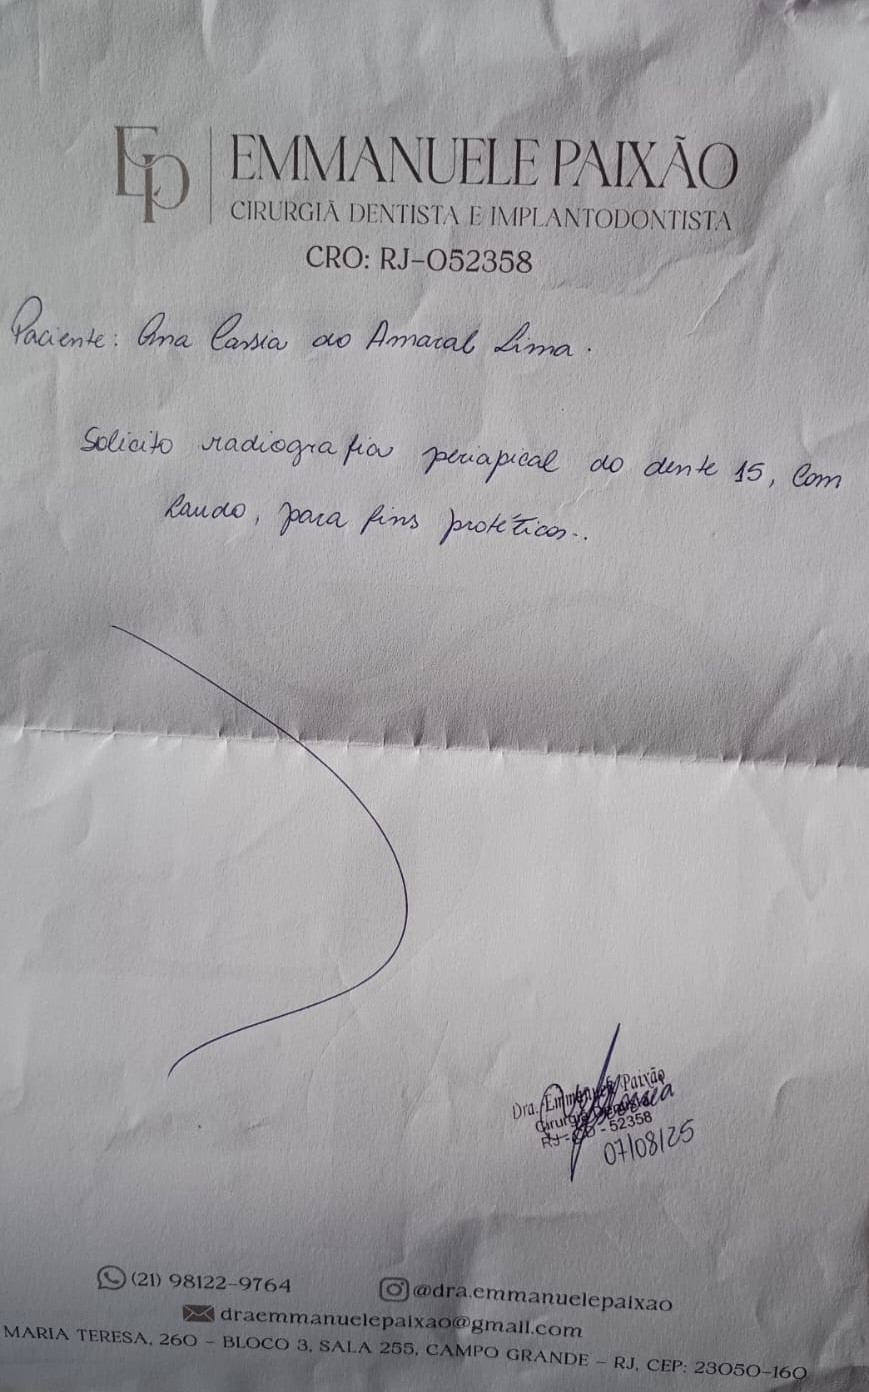 EP
EMMANUELE PAIXÃO
CIRURGIÃ DENTISTA E IMPLANTODONTISTA
CRO: RJ-052358
Paciente: Ana Cassia do Amaral Lima.
Solicito radiografia periapical do dente 15, com
laudo, para fins protéticos..
Dra. Emmanuele Paixão
Cirurgiã Dentista
RJ - CD - 52358
07/08/25
(21) 98122-9764
@dra.emmanuelepaixao
draemmanuelepaixao@gmail.com
MARIA TERESA, 260 - BLOCO 3, SALA 255, CAMPO GRANDE - RJ, CEP: 23050-160